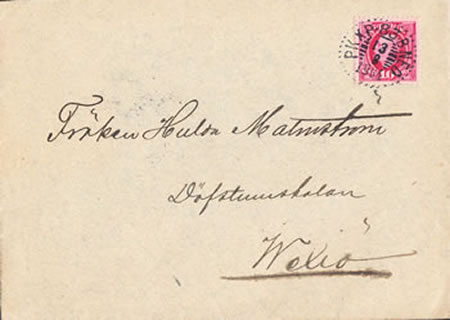 PKXP
10
Fröken Hulda Malmström
Döfstumskolan
Wexiö